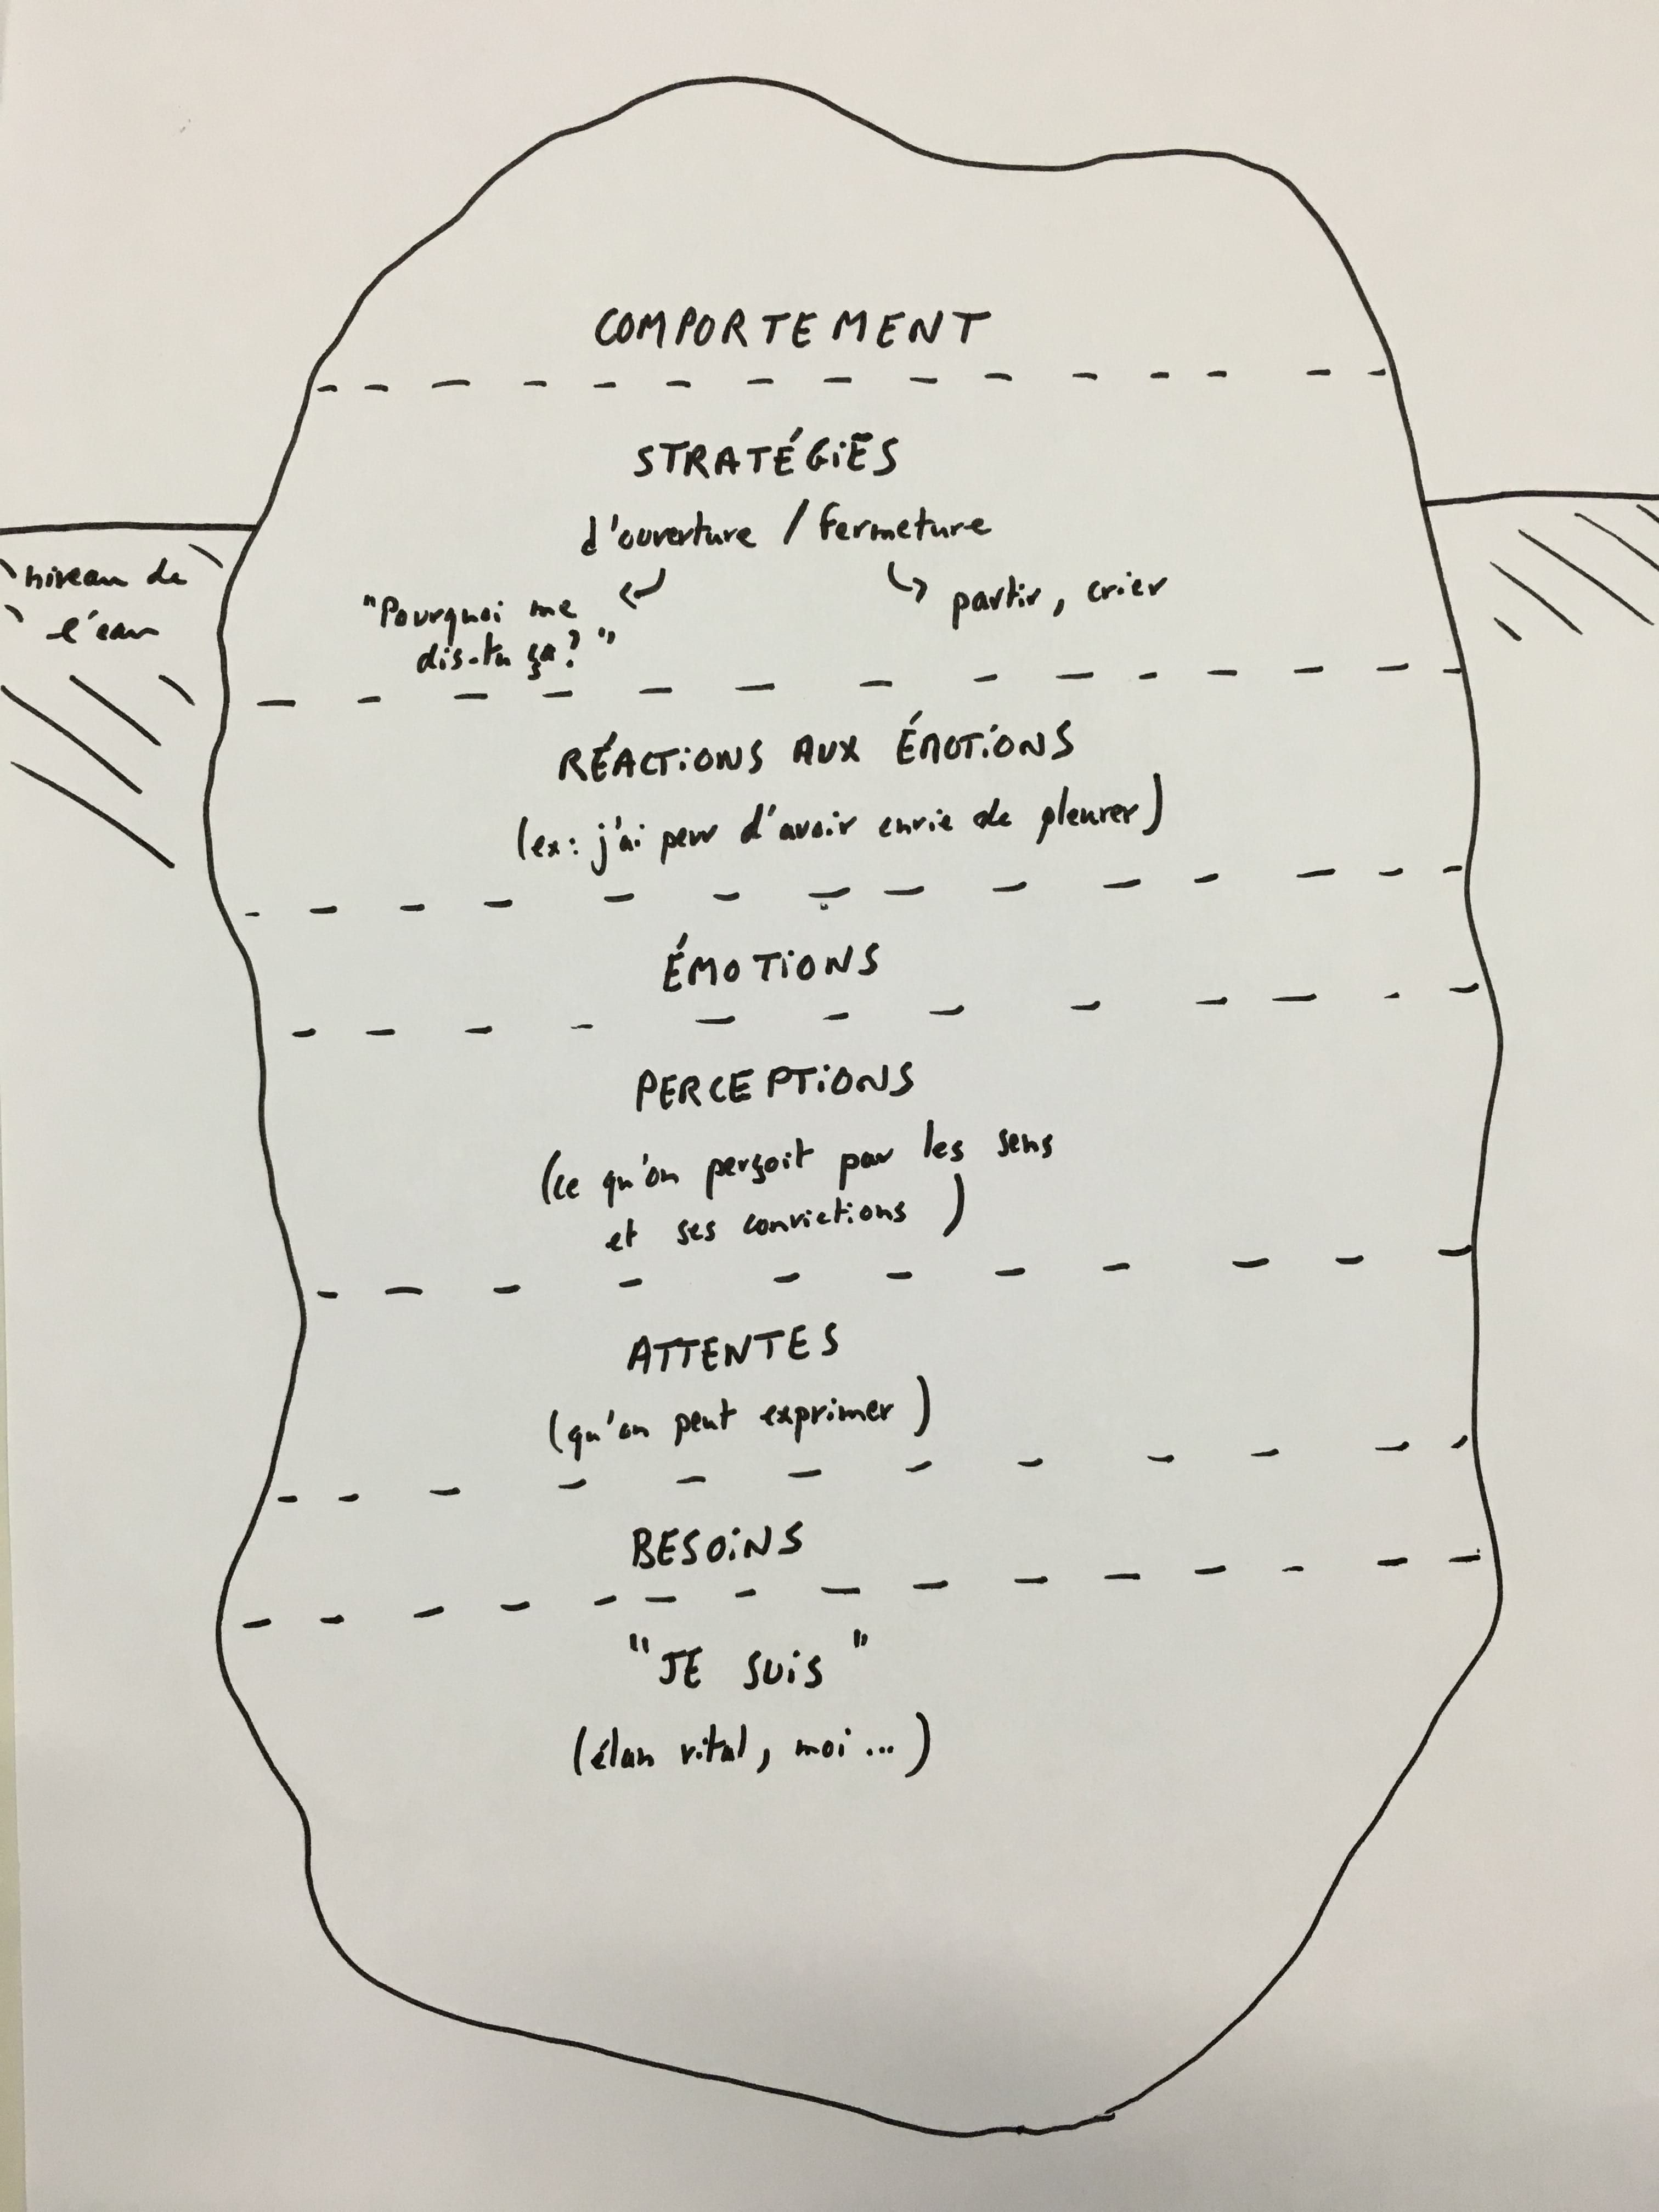 COMPORTEMENT
STRATÉGIES
d'ouverture / fermeture
niveau de
l'eau
"Pourquoi me
dis-tu ça?"
partir, crier
RÉACTIONS AUX ÉMOTIONS
(ex: j'ai peur d'avoir envie de pleurer)
ÉMOTIONS
PERCEPTIONS
(ce qu'on perçoit par les sens
et ses convictions)
ATTENTES
(qu'on peut exprimer)
BESOINS
"JE SUIS"
(élan vital, moi...)